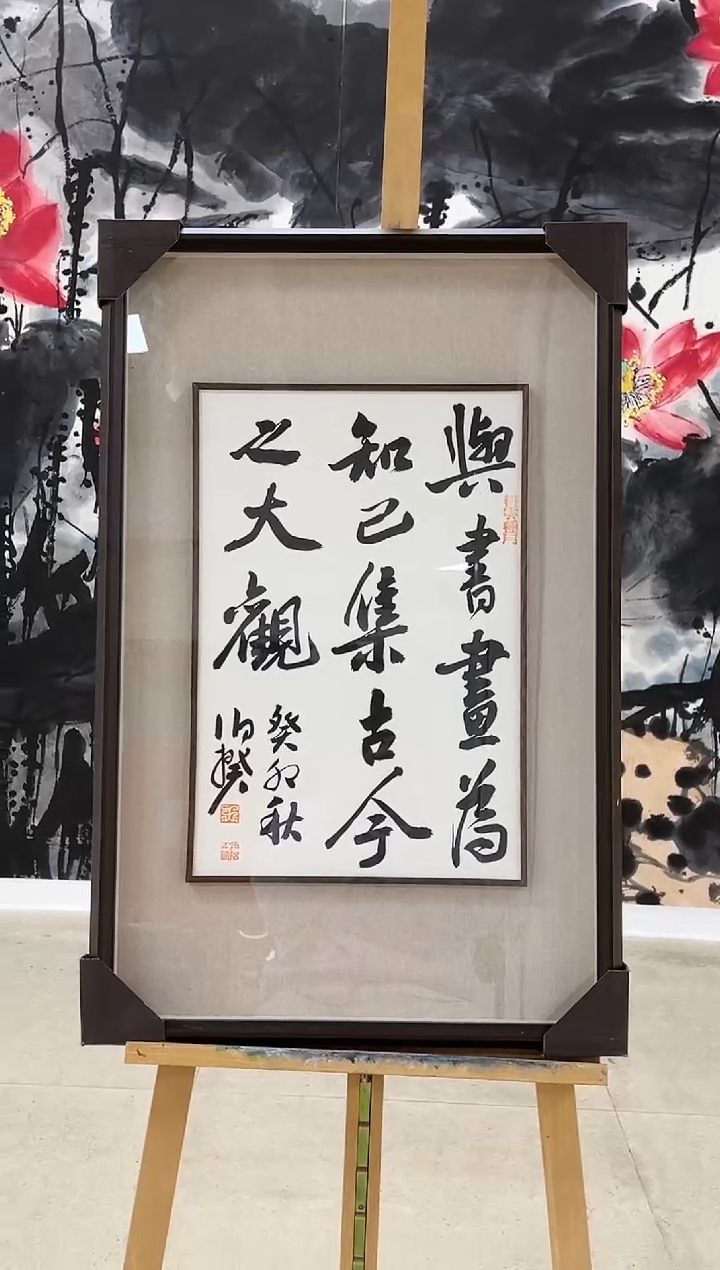 與書畫為
知己集古今
之大觀
癸卯秋